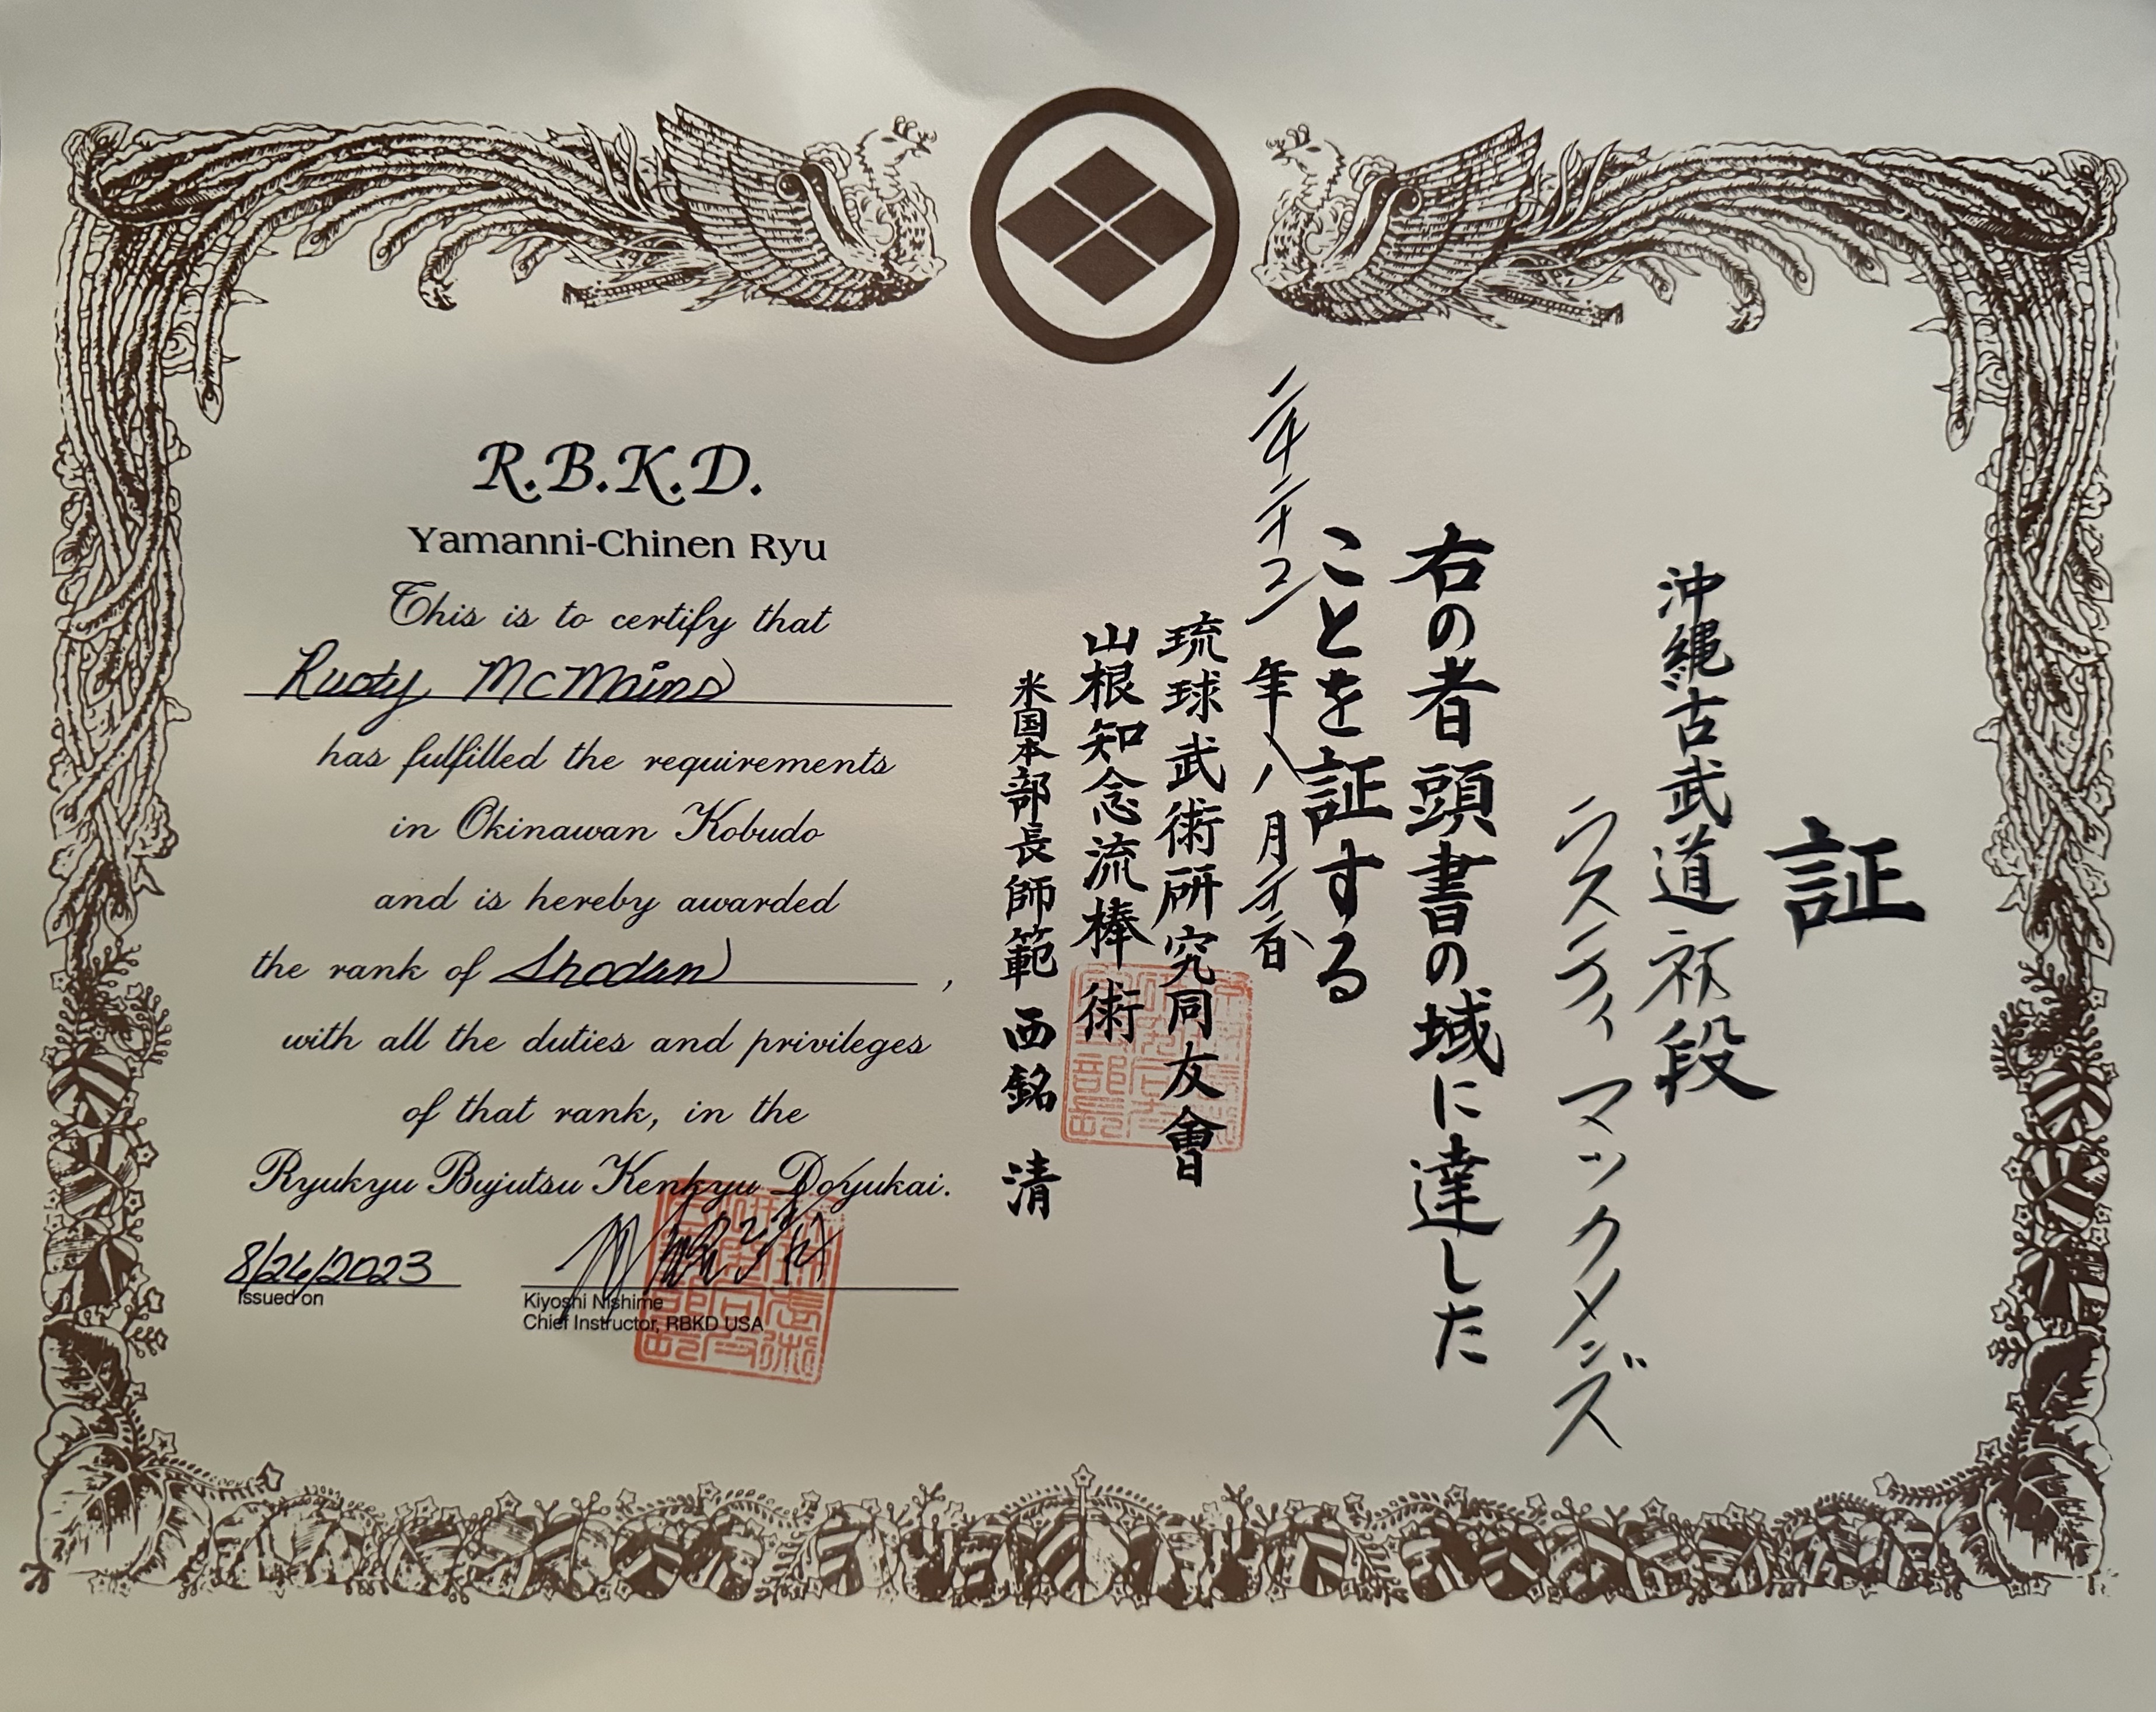 R.B.K.D.
Yamanni-Chinen Ryu
This is to certify that
Rusty McMains
has fulfilled the requirements
in Okinawan Kobudo
and is hereby awarded
the rank of Shodan,
with all the duties and privileges
of that rank, in the
Ryukyu Bujutsu Kenkyu Doyukai.
8/26/2023
Issued on
Kiyoshi Nishime
Chief Instructor, RBKD USA
証
沖縄古武道 初段
ラスティ マックメンズ
右の者頭書の域に達した
ことを証する
二千二十三年八月二十六日
琉球武術研究同友會
山根知念流棒術
米国本部長師範 西銘 清